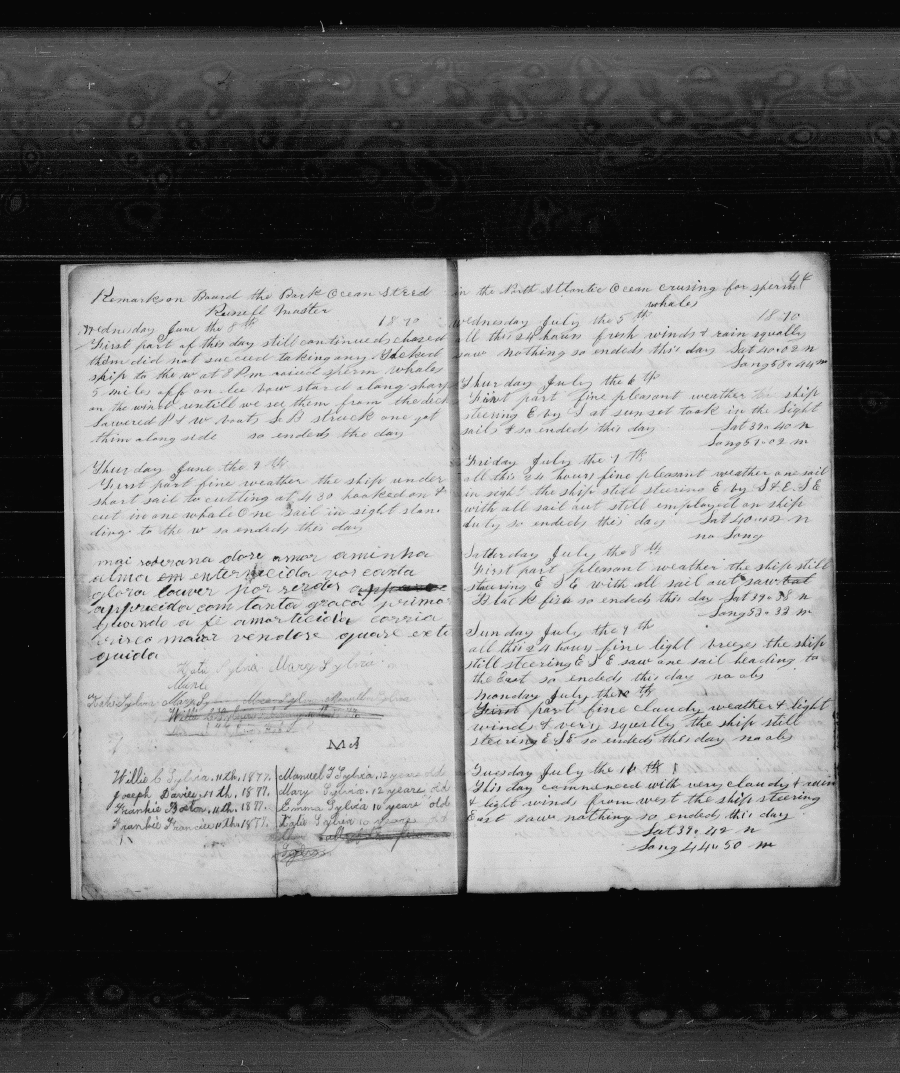 Remarks on Board the Bark Ocean Steed
Russell Master
Wednesday June the 8th 1870
First part of this day still continued chased
them did not succeed taking any Tacked
ship to the w at 2 Pm raised sperm whales
5 miles off on lee bow stard along sharp
on the wind untill we se them from the deck
Lowered P & W boats S B struck one got
them along side so ended the day
Thurday June the 9th
First part fine weather the ship under
short sail to cutting at 4 30 hooked on &
cut in one whale One Sail in sight stan
ding to the w so ended this day
mai soberana dore amor aminha
alma em enternicida nos canda
glora louver por serdes
apparicida com tanta graca primor
quando a fé amorticida corria
o risco maior vendore quare exti
guida
Kate Sylvia Mary Sylvia
Marie
Katie Sylvia Mary
Willie
MA
Willie C Sylvia, 11th, 1877.
Joseph Davies, 11th, 1877.
Frankie Boston, 11th, 1877.
Frankie Francis 11ths, 1877.
Manuel T Sylvia, 12 years old
Mary Sylvia, 12 years old
Emma Sylvia 10 years old
Katie Sylvia 10 years old
44
in the North Atlantic Ocean crusing for sperm
whales
Wednesday July the 5th 1870
all this 24 hours fresh winds & rain squally
saw nothing so ended this day Lat 40.02 n
Long 58.44 m
Thurday July the 6th
First part fine pleasant weather the ship
steering E by S at sunset took in the light
sails & so ended this day Lat 39.40 n
Long 57.02 m
Friday July the 7th
all this 24 hours fine pleasant weather one sail
in sight the ship still steering E by S & E.S E
with all sail out still employed on ship
duty so ended this day Lat 40.42 n
no Long
Satturday July the 8th
First part pleasant weather the ship still
steering E S E with all sail out saw
Black fish so ended this day Lat 39.38 n
Long 53.33 m
Sunday July the 9th
all this 24 hours fine light breezes the ship
still steering E S E saw one sail heading to
the East so ended this day no obs
Monday July the th
First part fine claudy weather & light
winds & very squally the ship still
steering E S E so ended this day no obs
Tuesday July the 11th
This day commenced with very claudy & rain
& light winds from west the ship steering
East saw nothing so ended this day
Lat 39.42 n
Long 44.50 m